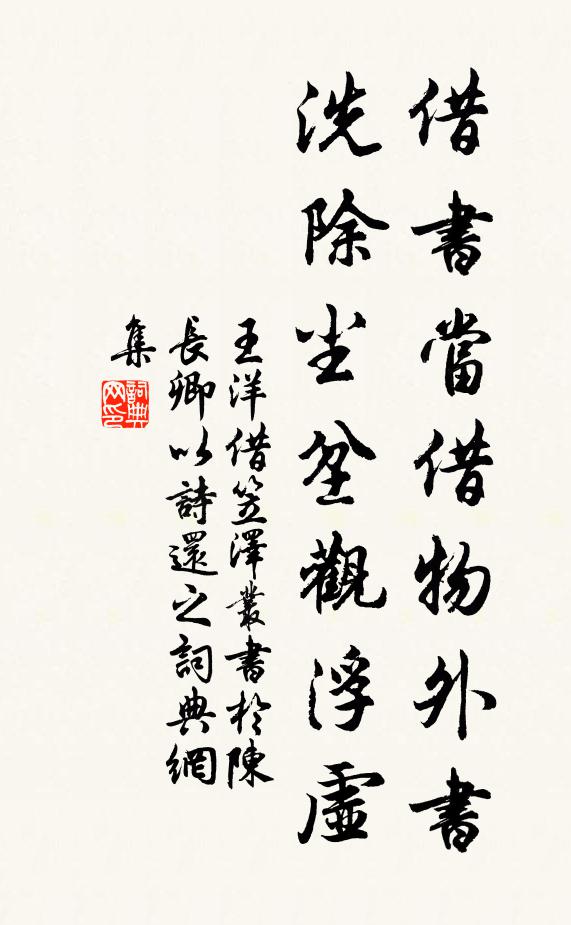 借書當借物外書
洗除坌坌觀浮虛
王洋借笠澤叢書於陳
長卿以詩還之詞典網
集
詞典
网印